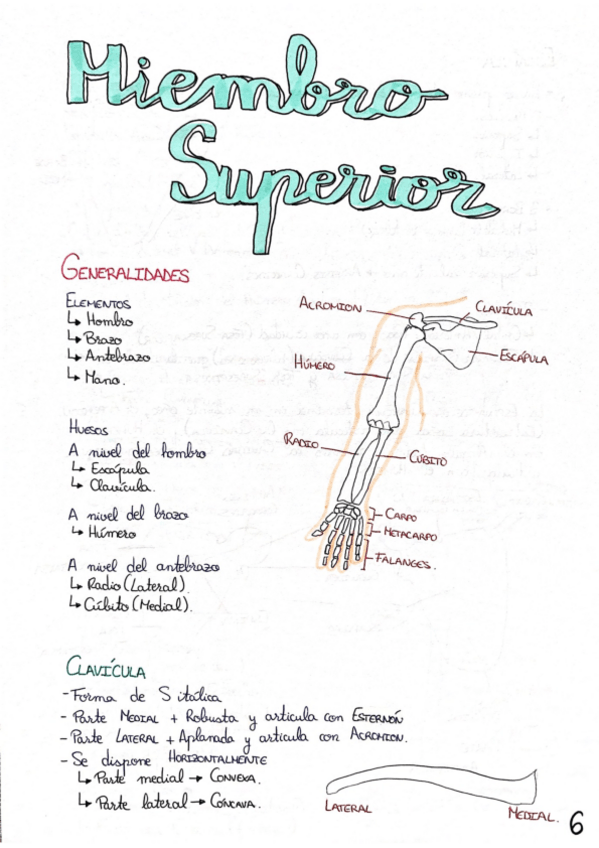 Miembro
Superior
GENERALIDADES
ELEMENTOS
↳ Hombro
↳ Brazo
↳ Antebrazo
↳ Mano.
HUESOS
A nivel del hombro
↳ Escápula
↳ Clavícula.
A nivel del brazo
↳ Húmero
A nivel del antebrazo
↳ Radio (Lateral).
↳ Cúbito (Medial).
ACROMION
CLAVÍCULA
ESCÁPULA
HÚMERO
RADIO
CÚBITO
CARPO
METACARPO
FALANGES.
CLAVÍCULA
- Forma de S itálica
- Parte MEDIAL + Robusta y articula con ESTERNÓN
- Parte LATERAL + Aplanada y articula con ACROMION.
- Se dispone HORIZONTALMENTE
↳ Parte medial → CONVEXA.
↳ Parte lateral → CÓNCAVA.
LATERAL
MEDIAL.
6